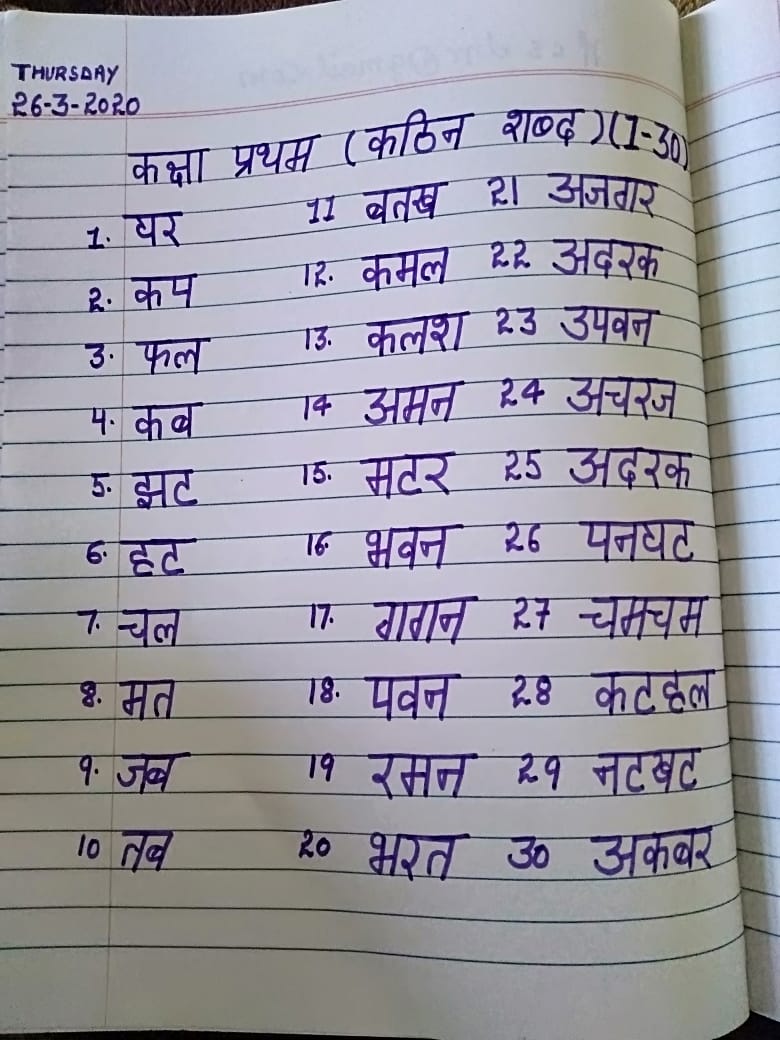 THURSDAY
26-3-2020
कक्षा प्रथम (कठिन शब्द)(1-30)
1. घर 11 बतख 21 अजगर
2. कप 12. कमल 22 अदरक
3. फल 13. कलश 23 उपवन
4. कब 14 अमन 24 अचरज
5. झट 15. मटर 25 अदरक
6. हट 16. भवन 26 पनघट
7. चल 17. गगन 27 चमचम
8. मत 18. पवन 28 कटहल
9. जब 19 रमन 29 नटखट
10 तब 20 भरत 30 अकबर